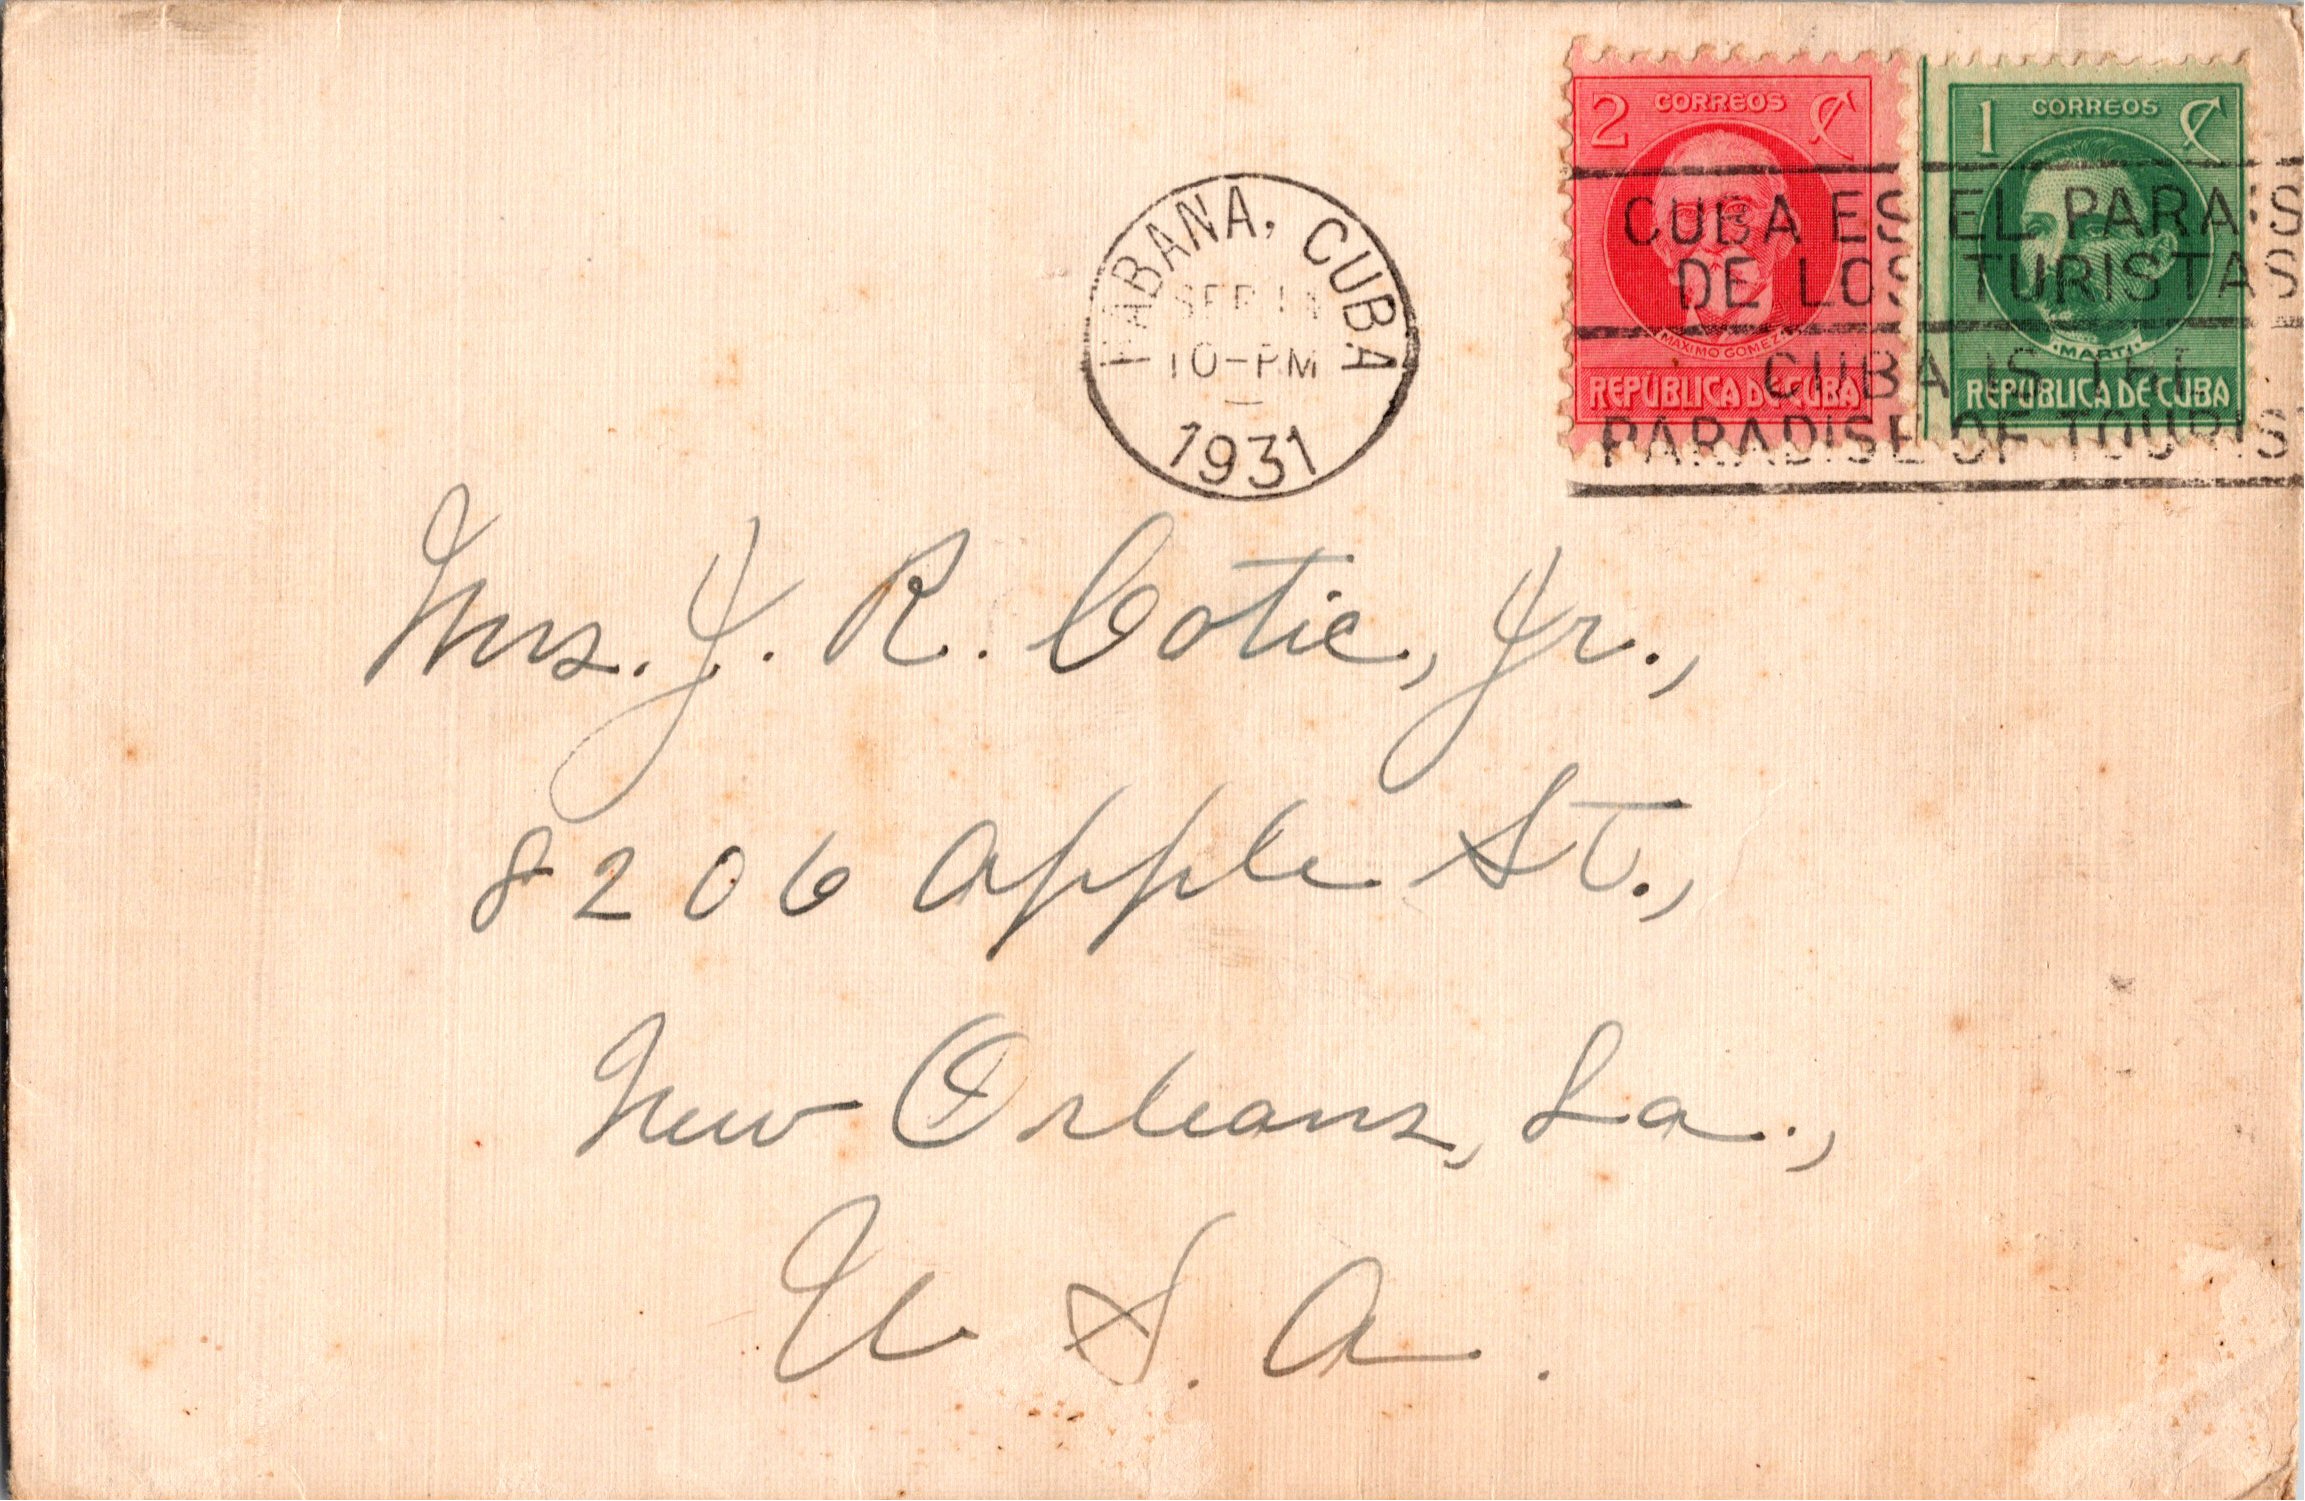 2 CORREOS
MAXIMO GOMEZ
REPUBLICA DE CUBA
1 CORREOS
MARTI
REPUBLICA DE CUBA
HABANA, CUBA
SEP
10-PM
1931
CUBA ES EL PARAIS
DE LOS TURISTAS
CUBA IS THE
PARADISE OF TOURIS
Mrs. J. R. Cotie, Jr.,
8206 Apple St.,
New Orleans, La.,
U. S. A.